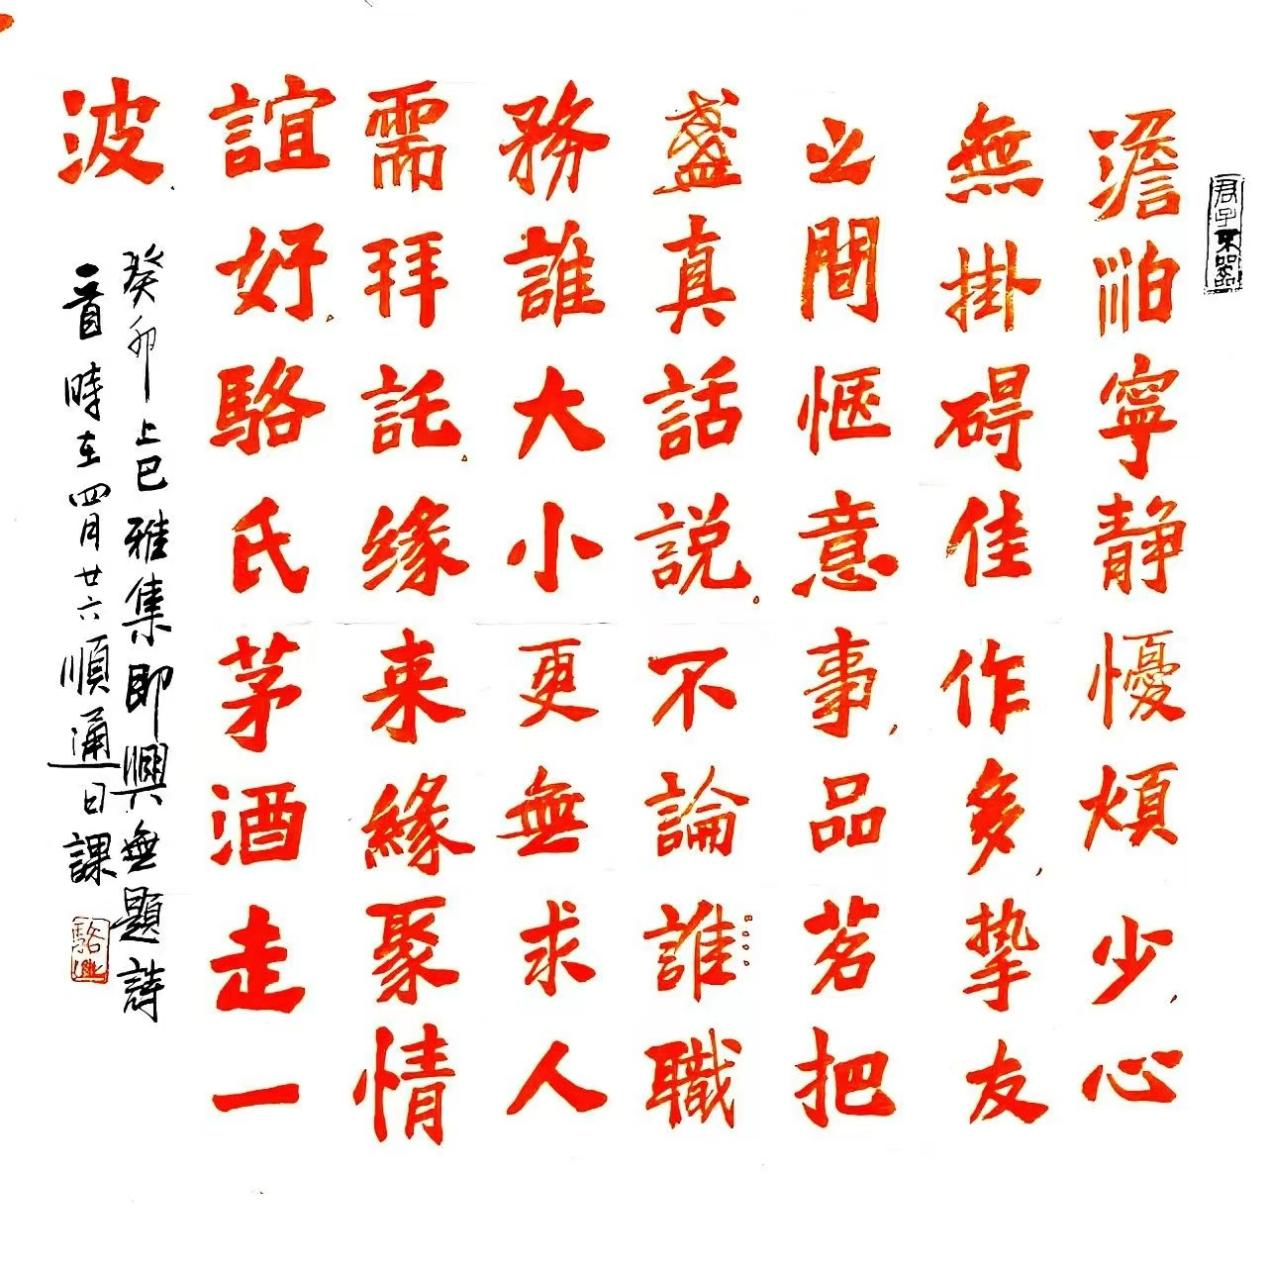 君子不器
澹泊寧静懮煩少心
無掛碍佳作多挚友
之間愜意事品茗把
盞真話説不論誰職
務誰大小更無求人
需拜託缘来緣聚情
誼好駱氏茅酒走一
波
癸卯上巳雅集即興無題詩
一首時在四月廿六順通日課